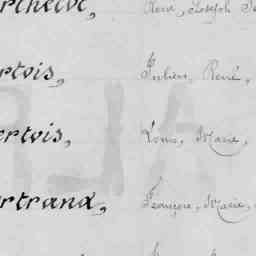 René, Joseph
ertois, Julien, René,
ertois, Louis, Marie,
ertrand, François, Marie,